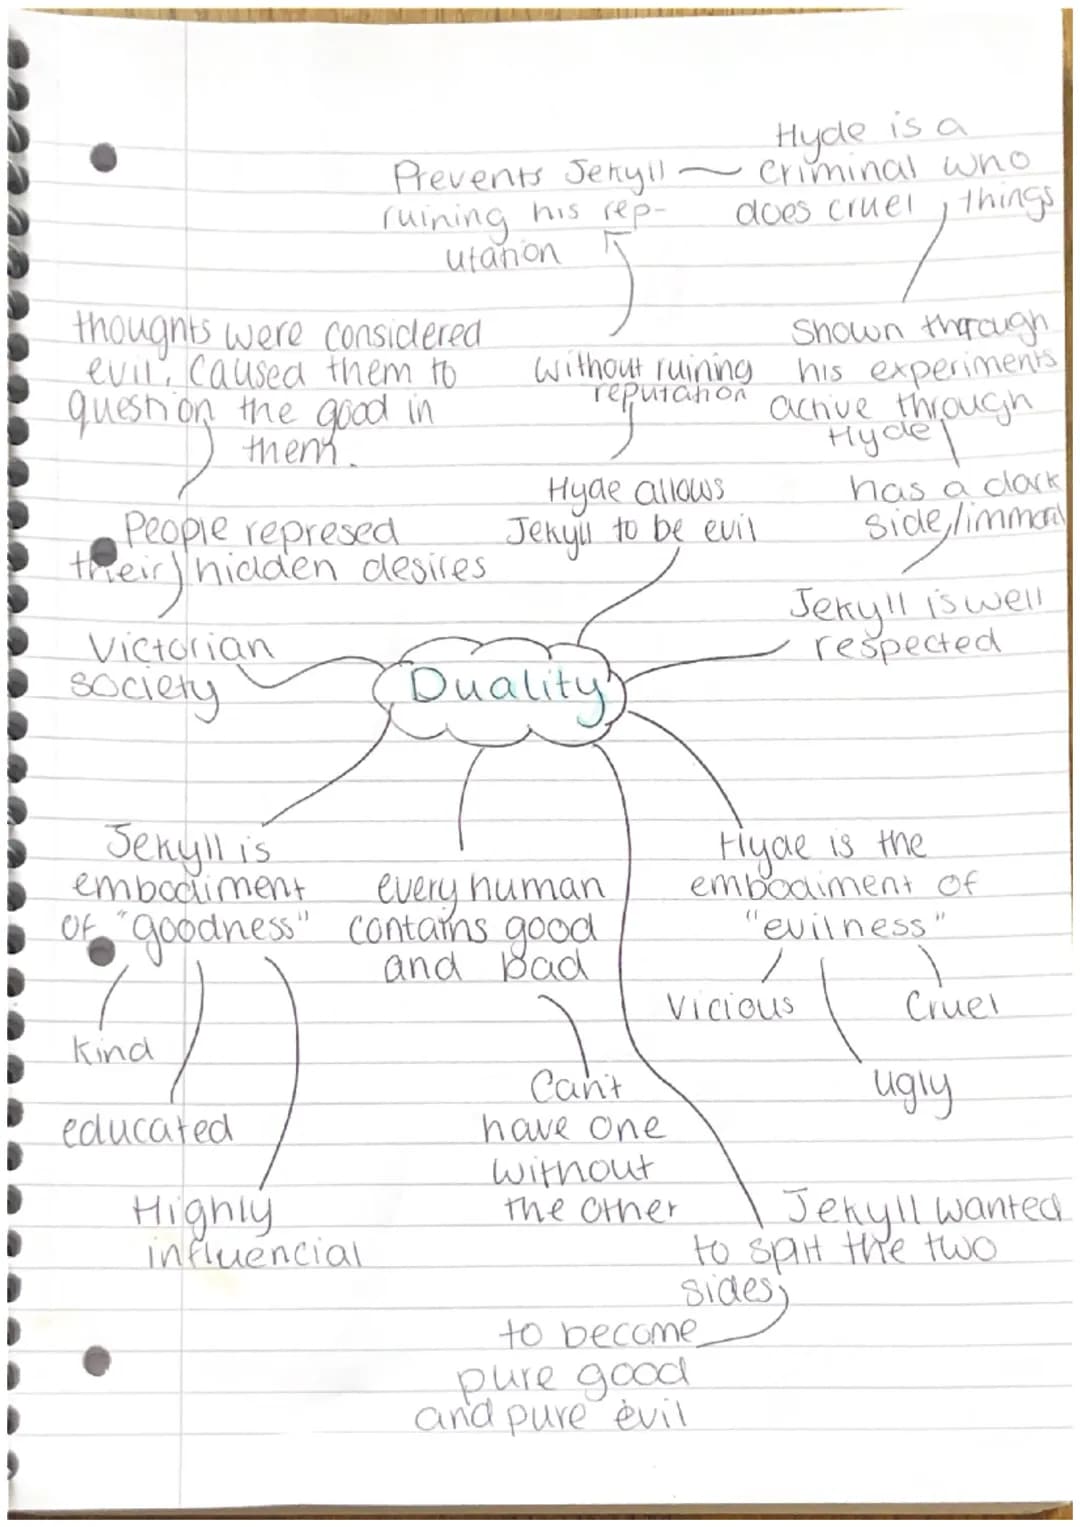 Hyde is a
criminal who
does cruel things
Prevents Jekyll
ruining his rep-
utation
thoughts were considered
evil. Caused them to
question the good in
them.
without ruining
reputation
Shown through
his experiments
active through
Hyde
Hyde allows
Jekyll to be evil
has a dark
side/immoral
People represed
their hidden desires
Jekyll is well
respected
Victorian
society
Duality
Jekyll is
embodiment
of "goodness"
every human
contains good
and bad
Hyde is the
embodiment of
"evilness"
Vicious
Cruel
kind
ugly
educated
Can't
have one
without
the other
Highly
influencial
Jekyll wanted
to split the two
sides
to become
pure good
and pure evil